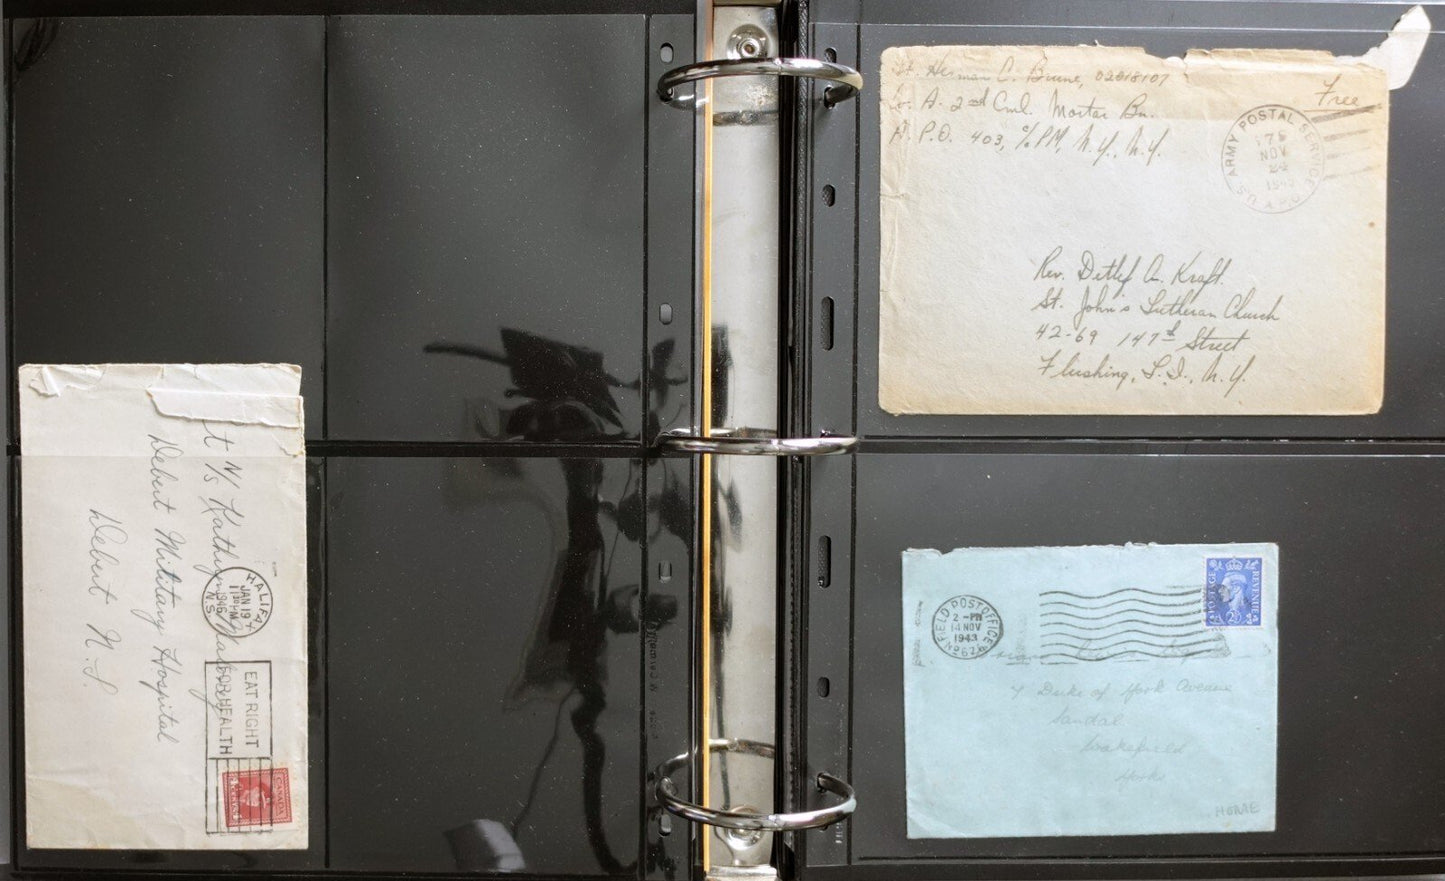 t N/s Kathryn
Debert Military Hospital
Debert N.S.
HALIFA
JAN 19
11 30 PM
1946
N.S.
EAT RIGHT
FOR HEALTH
CANADA
4 CENTS 4
Lt. Herman C. Brune, 02018107
Co. A. 2nd Cml. Mortar Bn.
A. P.O. 403, c/o PM, N.Y., N.Y.
Free
U.S. ARMY POSTAL SERVICE
NOV
24
A.P.O.
Rev. Detlef A. Kraft.
St. John's Lutheran Church
42-69 147th Street
Flushing, L.I., N.Y.
FIELD POST OFFICE
2 - PM
14 NOV
1943
POSTAGE
REVENUE
7 Duke of York Avenue
Sandal
Wakefield
Yorks
HOME